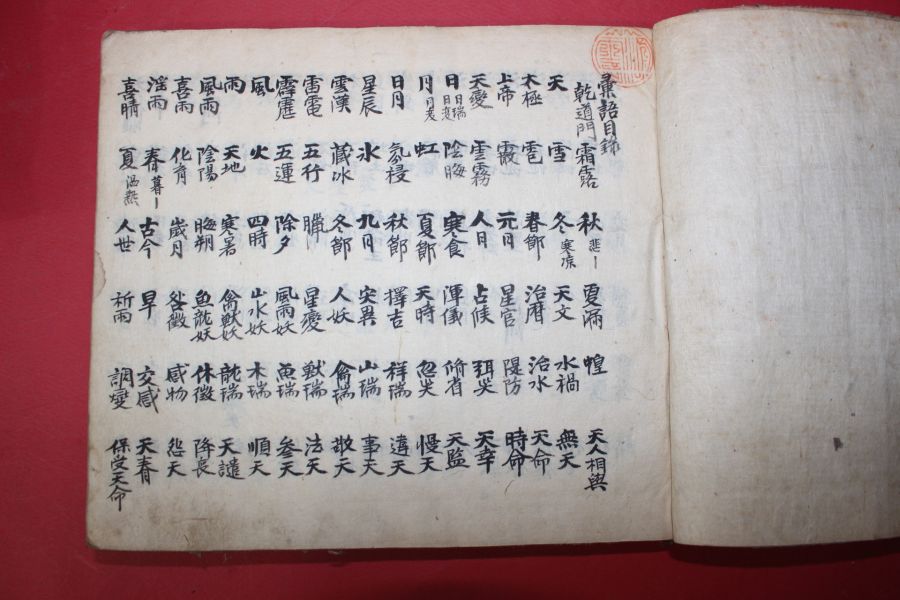 彙語目錄
乾道門 霜露 秋 悲〡 蝗 天人相與
天 雪 冬 寒凉 天文 水禍 無天
太極 雹 春節 治曆 治水 天命
上帝 霰 元日 星官 隄防 時命
天變 雲霧 人日 占候 弭災 天幸
日 日瑞 日変 陰晦 寒食 渾儀 脩省 天監
月 月変 虹 夏節 天時 忽災 慢天
日月 氛祲 秋節 擇吉 祥瑞 違天
星辰 氷 九月 災異 山瑞 事天
雲漢 藏氷 冬節 人妖 禽瑞 敬天
雷電 五行 臘 星變 獸瑞 法天
霹靂 五運 除夕 風雨妖 魚瑞 參天
風 火 四時 山水妖 木瑞 順天
雨 天地 寒暑 禽獸妖 龍瑞 天譴
風雨 陰陽 晦朔 魚龍妖 休徵 降喪
喜雨 化育 歲月 咎徵 感物 怨天
淫雨 春 暮〡 古今 旱 交感 天眷
喜晴 夏 温熱 人世 祈雨 調燮 保受天命